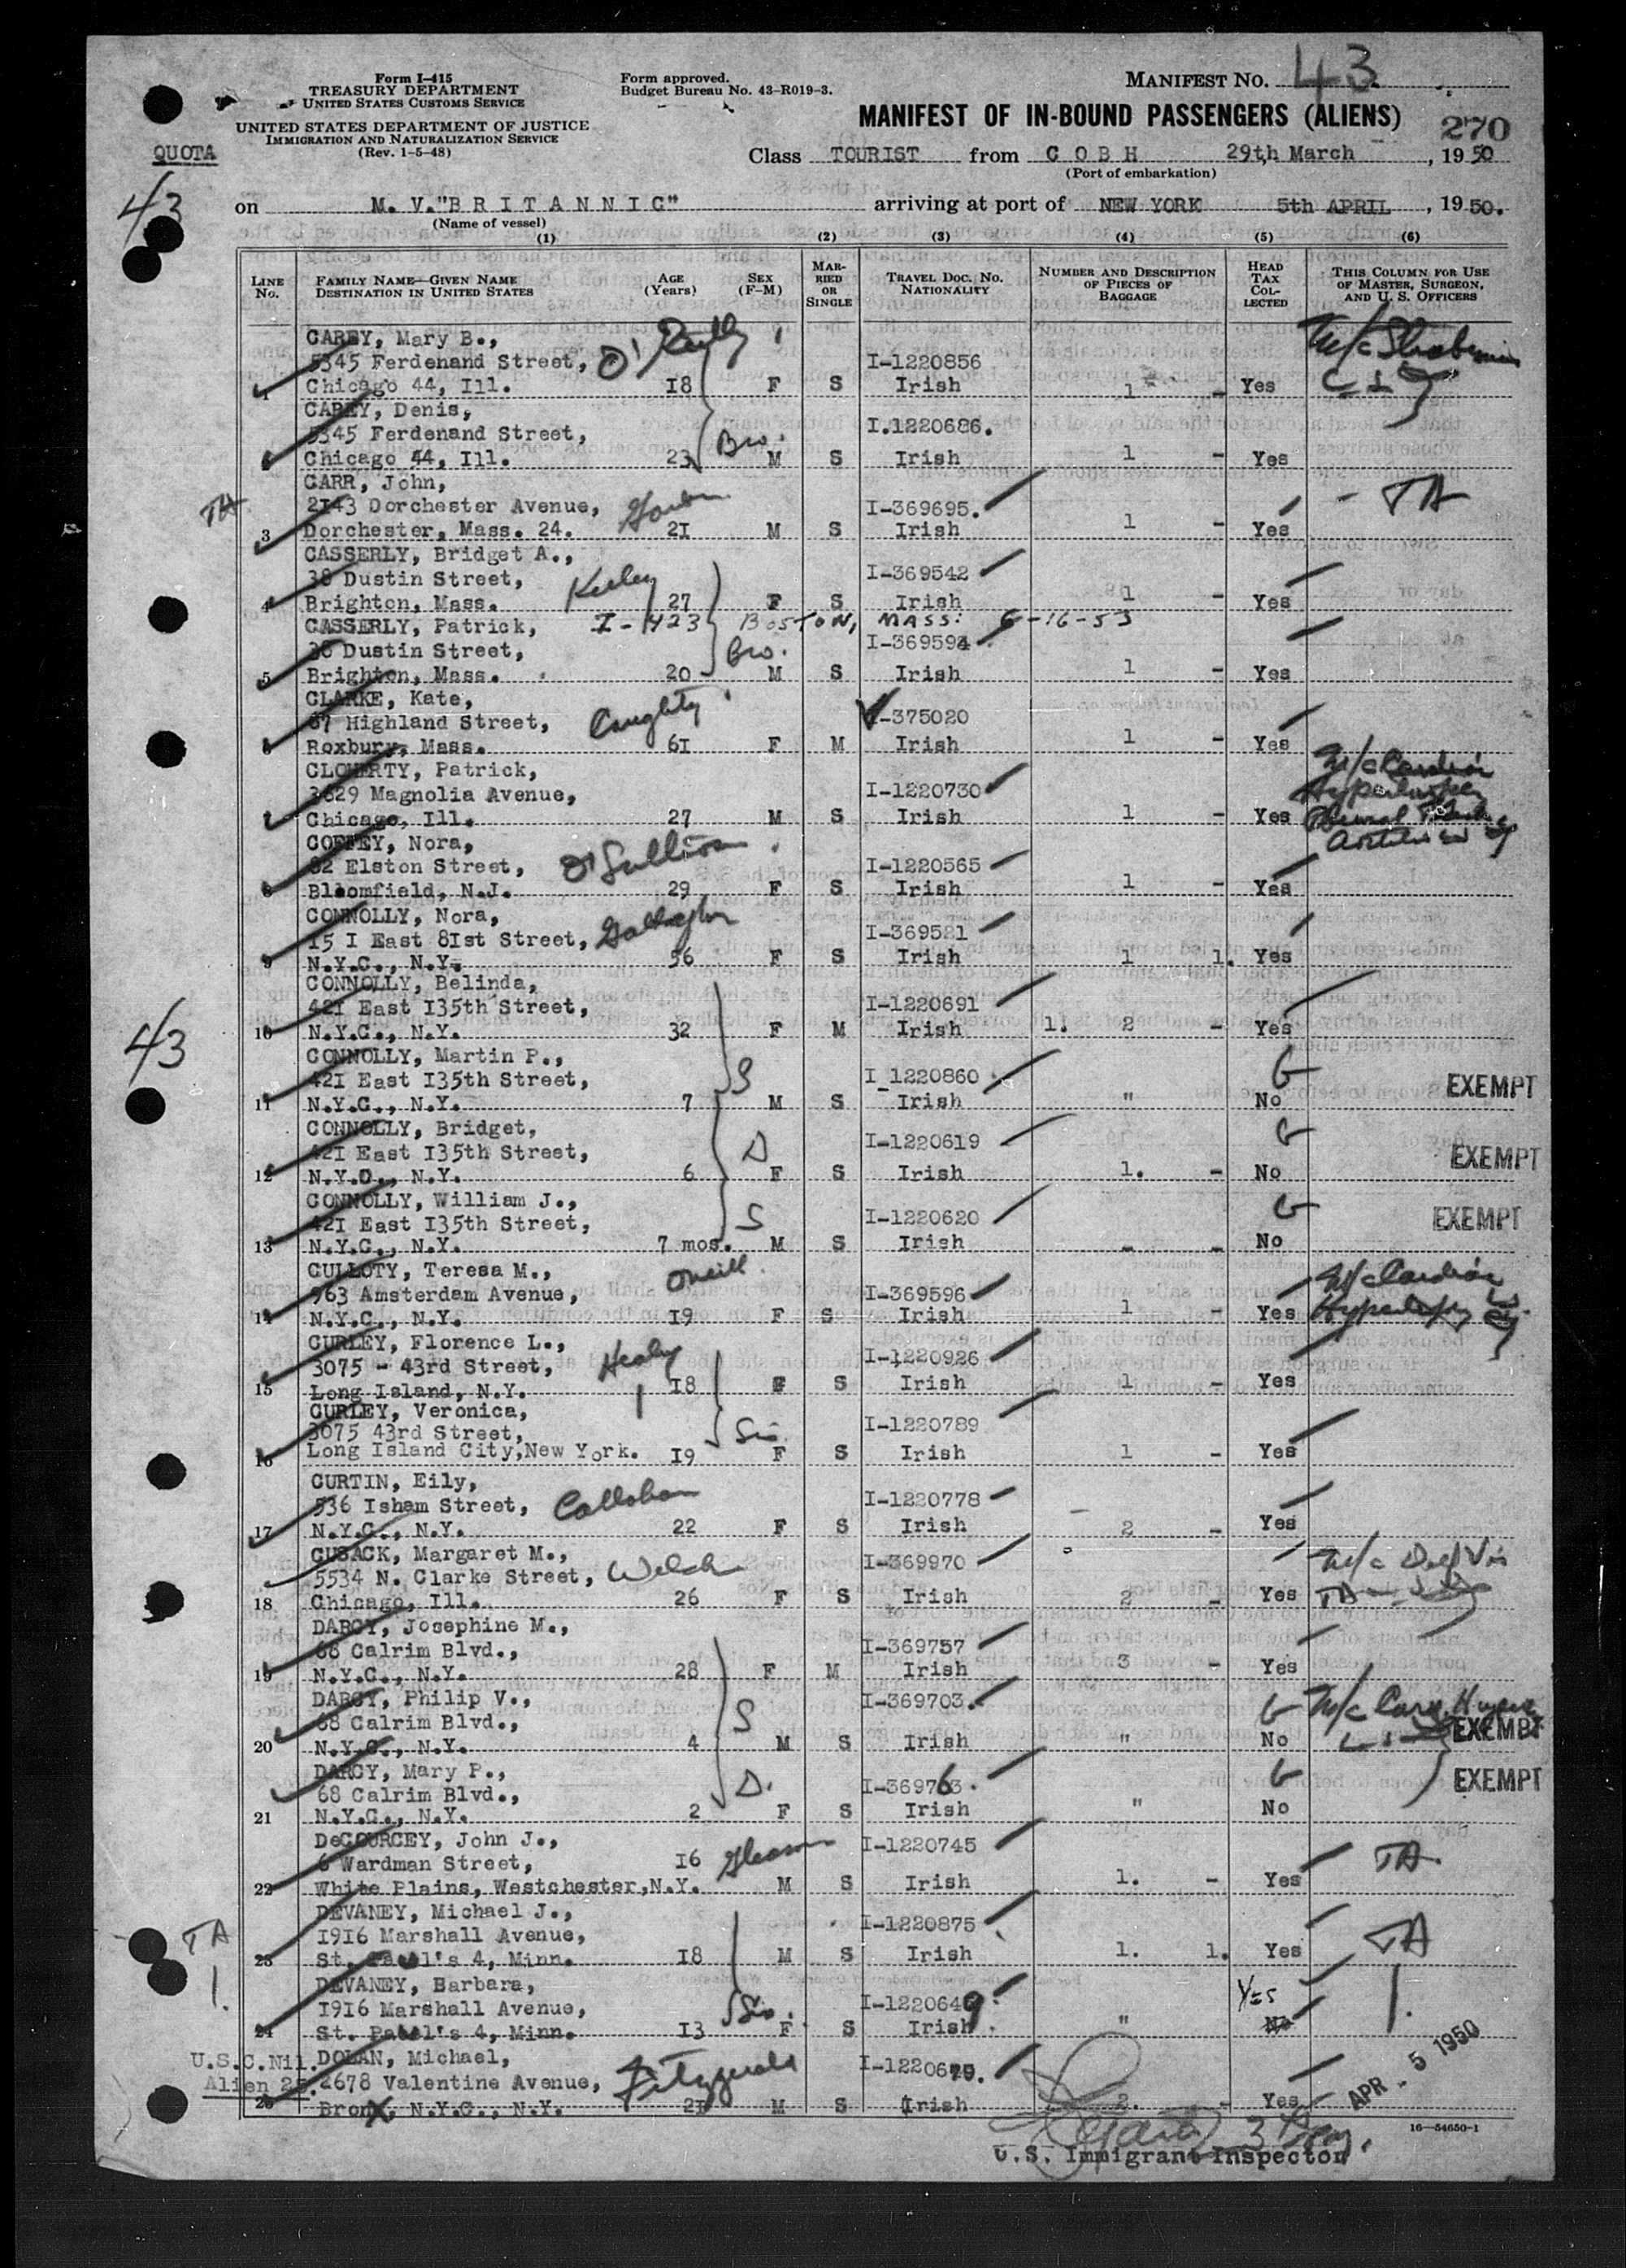 Form I-415
TREASURY DEPARTMENT
UNITED STATES CUSTOMS SERVICE
UNITED STATES DEPARTMENT OF JUSTICE
IMMIGRATION AND NATURALIZATION SERVICE
(Rev. 1-5-48)
Form approved.
Budget Bureau No. 43-R019-3.
MANIFEST NO. 43
MANIFEST OF IN-BOUND PASSENGERS (ALIENS)
270
QUOTA
43
Class TOURIST from COBH 29th March, 1950
(Port of embarkation)
on M. V."BRITANNIC" arriving at port of NEW YORK 5th APRIL, 1950.
(Name of vessel)
(1) (2) (3) (4) (5) (6)
LINE No. FAMILY NAME—GIVEN NAME DESTINATION IN UNITED STATES AGE (Years) SEX (F-M) MARRIED OR SINGLE TRAVEL DOC. NO. NATIONALITY NUMBER AND DESCRIPTION OF PIECES OF BAGGAGE HEAD TAX COLLECTED THIS COLUMN FOR USE OF MASTER, SURGEON, AND U. S. OFFICERS
CAREY, Mary B.,
5345 Ferdenand Street, O'Reilly I-1220856
1 Chicago 44, Ill. 18 F S Irish 1 - Yes
CAREY, Denis,
5345 Ferdenand Street, Bro. I.1220686.
Chicago 44, Ill. 23 M S Irish 1 - Yes
CARR, John,
TA 2143 Dorchester Avenue, I-369695. - TA
3 Dorchester, Mass. 24. 21 M S Irish 1 - Yes
CASSERLY, Bridget A.,
38 Dustin Street, I-369542
4 Brighton, Mass. 27 F S Irish 1 - Yes
CASSERLY, Patrick, I-423 BOSTON, MASS: 6-16-53
38 Dustin Street, Bro. I-369594
5 Brighton, Mass. 20 M S Irish 1 - Yes
CLARKE, Kate,
67 Highland Street, I-375020
6 Roxbury, Mass. 61 F M Irish 1 - Yes
CLOHERTY, Patrick,
3629 Magnolia Avenue, I-1220730
7 Chicago, Ill. 27 M S Irish 1 - Yes
COFFEY, Nora,
82 Elston Street, O'Sullivan I-1220565
8 Bloomfield, N.J. 29 F S Irish 1 - Yes
CONNOLLY, Nora,
15 I East 81st Street, Gallagher I-369521
9 N.Y.C., N.Y. 56 F S Irish 1 1. Yes
CONNOLLY, Belinda,
421 East 135th Street, I-1220691
10 N.Y.C., N.Y. 32 F M Irish 1. 2 - Yes
43
CONNOLLY, Martin P.,
421 East 135th Street, S I-1220860 G EXEMPT
11 N.Y.C., N.Y. 7 M S Irish " No
CONNOLLY, Bridget,
421 East 135th Street, D I-1220619 G EXEMPT
12 N.Y.C., N.Y. 6 F S Irish 1. - No
CONNOLLY, William J.,
421 East 135th Street, S I-1220620 G EXEMPT
13 N.Y.C., N.Y. 7 mos. M S Irish - - No
CULLOTY, Teresa M., Oneill
963 Amsterdam Avenue, I-369596
14 N.Y.C., N.Y. 19 F S Irish 1 - Yes
CURLEY, Florence L.,
3075 - 43rd Street, Healy I-1220926
15 Long Island, N.Y. 18 F S Irish 1 - Yes
CURLEY, Veronica,
3075 43rd Street, Sis. I-1220789
16 Long Island City,New York. 19 F S Irish 1 - Yes
CURTIN, Eily,
536 Isham Street, Callahan I-1220778
17 N.Y.C., N.Y. 22 F S Irish 2 - Yes
CUSACK, Margaret M., I-369970 M/c Def Vis
5534 N. Clarke Street, Welch
18 Chicago, Ill. 26 F S Irish 2 - Yes
DARCY, Josephine M.,
68 Calrim Blvd., I-369757
19 N.Y.C., N.Y. 28 F M Irish 3 - Yes
DARCY, Philip V., I-369703.
68 Calrim Blvd., S G EXEMPT
20 N.Y.C., N.Y. 4 M S Irish " No
DARCY, Mary P.,
68 Calrim Blvd., D. I-369763. G EXEMPT
21 N.Y.C., N.Y. 2 F S Irish " No
DeCOURCEY, John J., I-1220745
6 Wardman Street, 16 Gleason TA.
22 White Plains, Westchester,N.Y. M S Irish 1. - Yes
DEVANEY, Michael J., I-1220875
TA 1916 Marshall Avenue, TA
23 St. Paul's 4, Minn. 18 M S Irish 1. 1. Yes
1. DEVANEY, Barbara, Yes 1.
1916 Marshall Avenue, Sis. I-1220649
24 St. Paul's 4, Minn. 13 F S Irish " No
U.S.C.Nil. DOLAN, Michael, I-1220679.
Alien 25. 2678 Valentine Avenue, Fitzgerald
25 Bronx, N.Y.C., N.Y. 21 M S Irish 2. - Yes
APR - 5 1950
16—54650-1
U.S. Immigrant Inspector